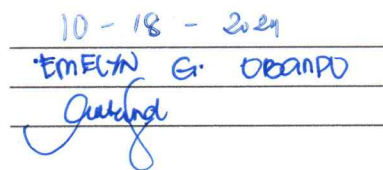 10 - 18 - 2024
EMELYN G. OBANDO